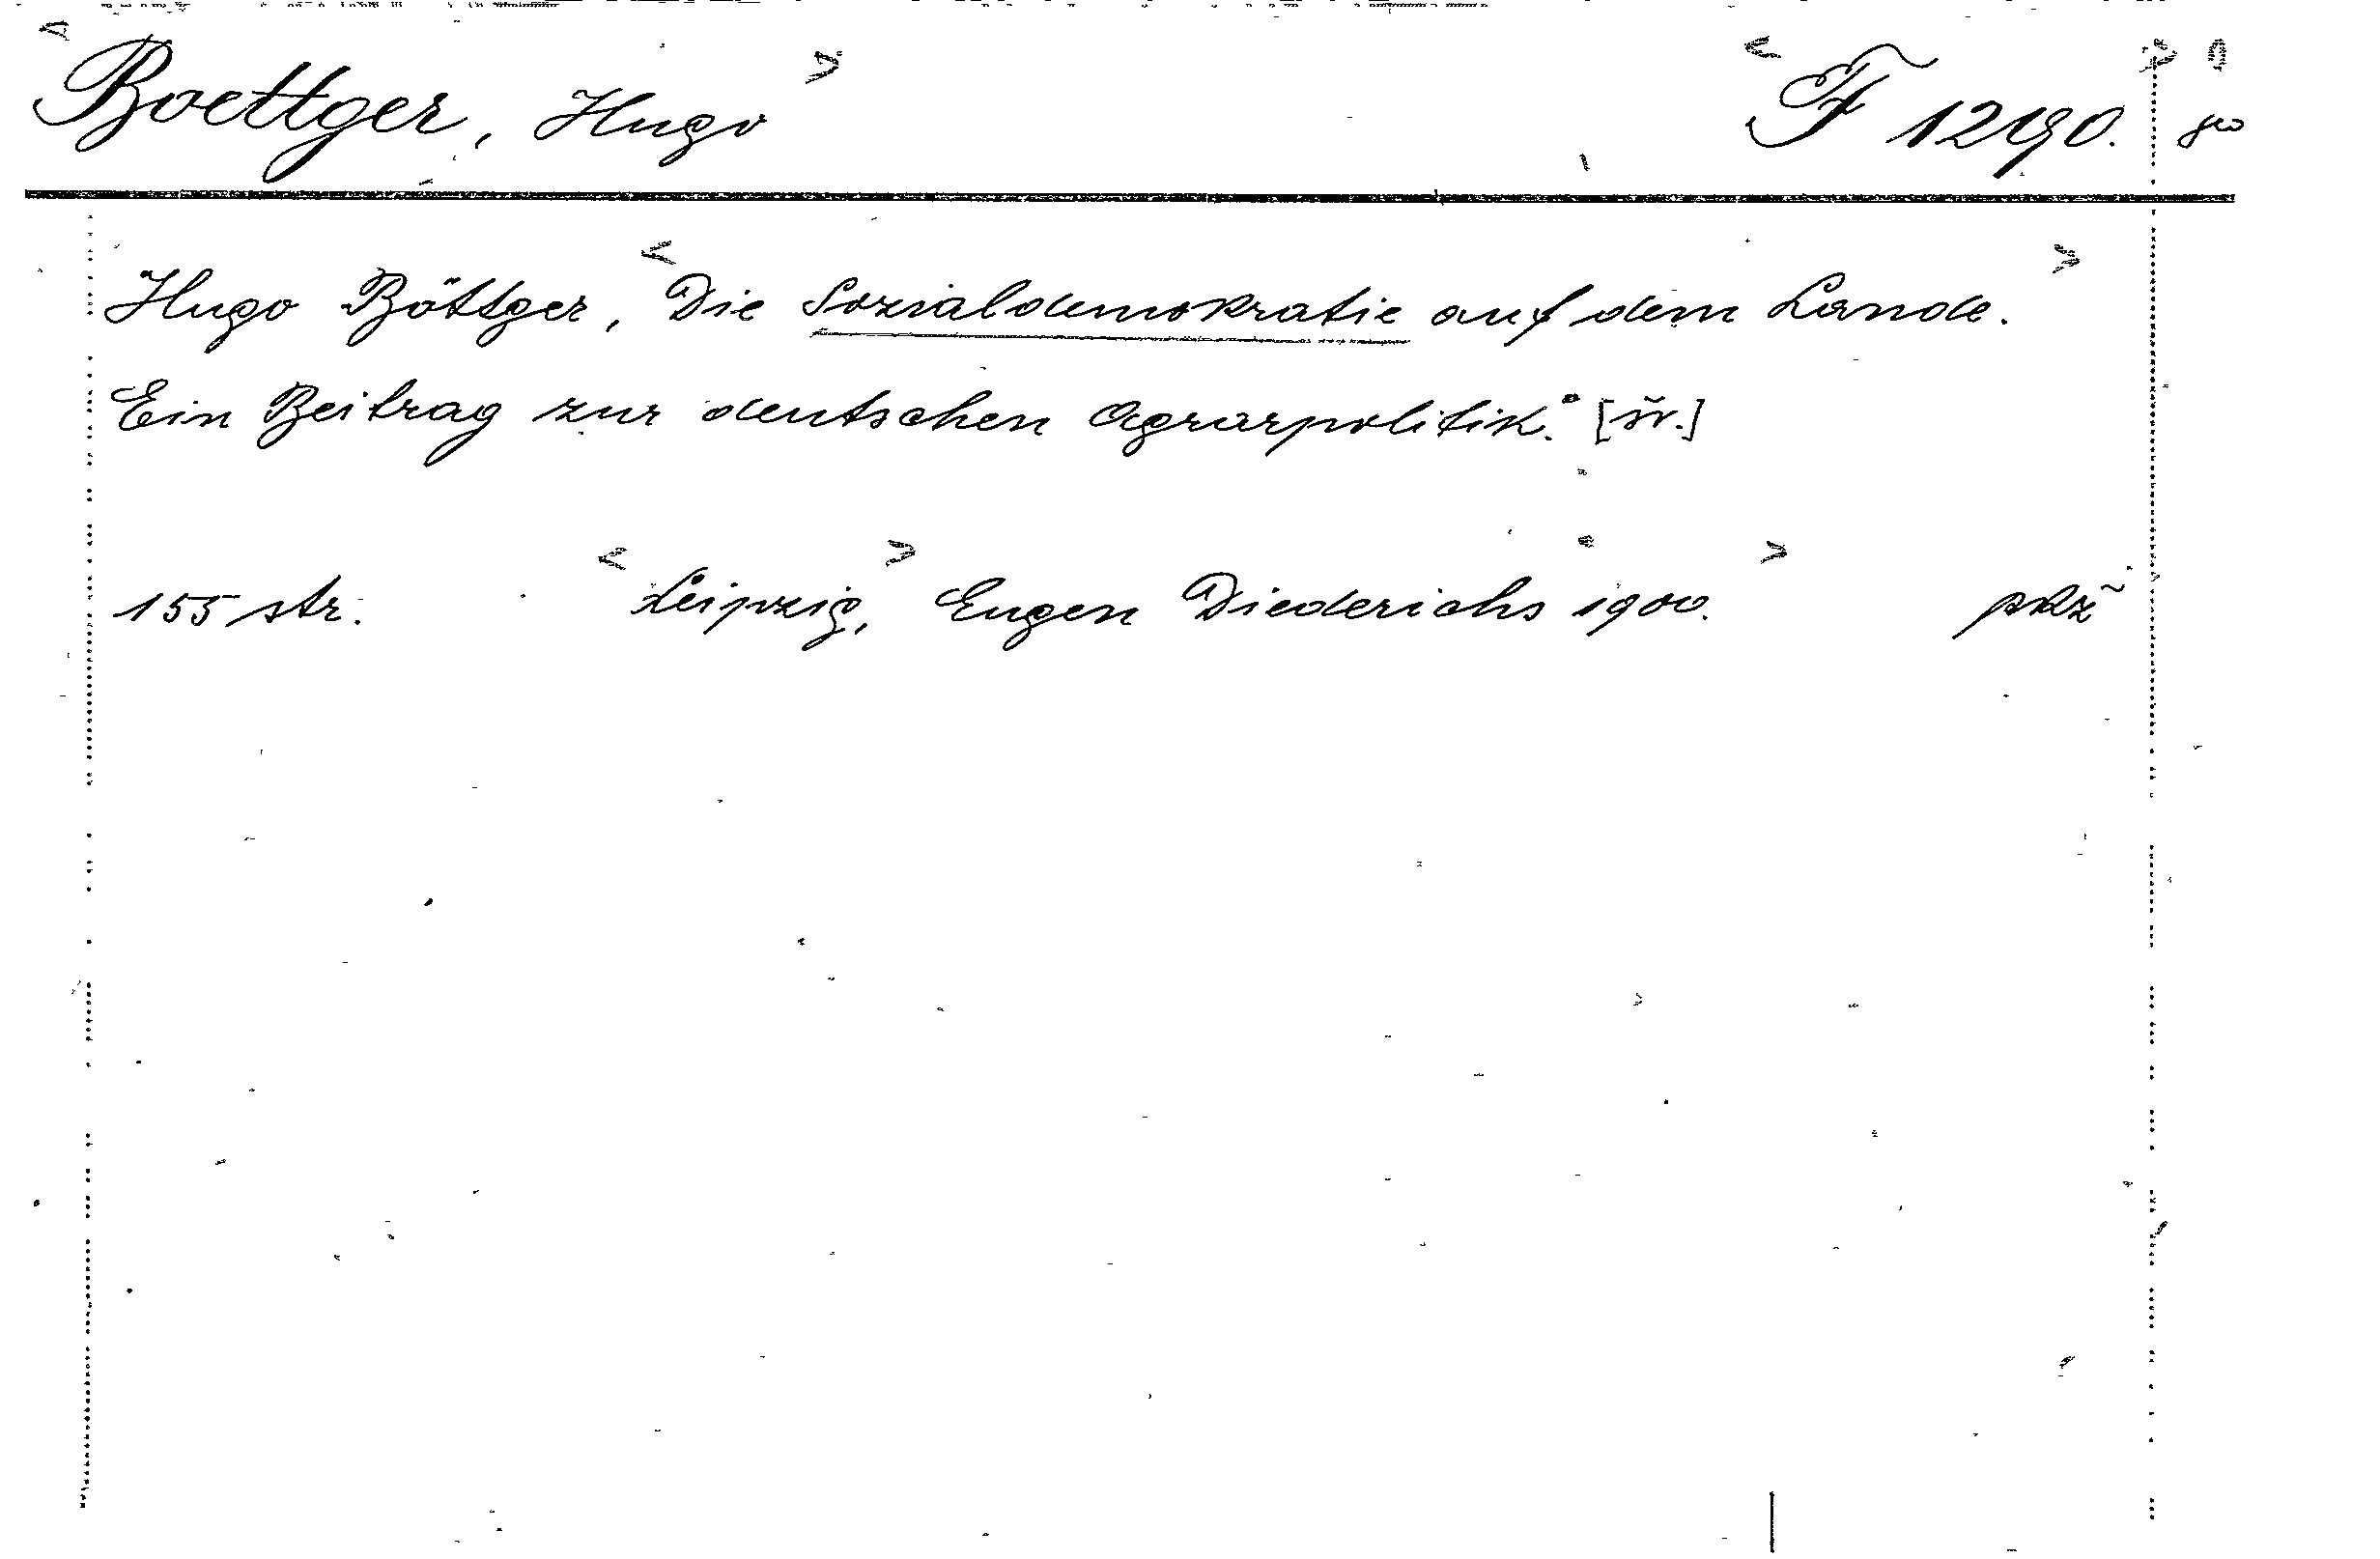 Boettger, Hugo F 1290.
Hugo Böttger, Die Sozialdemokratie auf dem Lande.
Ein Beitrag zur deutschen Agrarpolitik. [šv.]
155 str. Leipzig, Eugen Diederichs 1900.